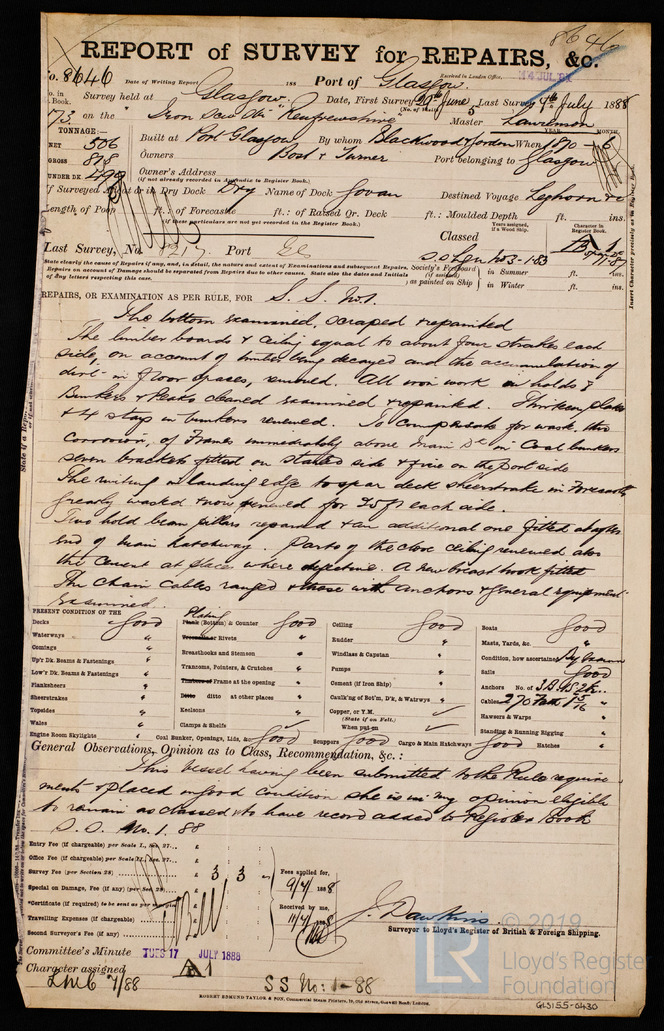 8646
REPORT of SURVEY for REPAIRS, &c.
No. 8646 Date of Writing Report 188 Port of Glasgow Received in London Office, 14 JUL 88
No. in Book. Survey held at Glasgow Date, First Survey 29th June Last Survey 9th July 1888
173 on the Iron Screw Str "Renfrewshire" Master Lawrenson
TONNAGE:—
NET 506
GROSS 878
UNDER DK 499
Built at Port Glasgow By whom Blackwood & Gordon When 1870 - 5
YEAR. MONTH.
Owners Port belonging to Glasgow
Owner's Address
(if not already recorded in Appendix to Register Book.)
If Surveyed Afloat or in Dry Dock Dry Name of Dock Govan Destined Voyage Leghorn &c
Length of Poop ft.: of Forecastle ft.: of Raised Qr. Deck ft.: Moulded Depth ft. ins.
(if these particulars are not yet recorded in the Register Book.)
Last Survey, No. Port Gls Classed
Years assigned, if a Wood Ship.
Character in Register Book.
A 1
State clearly the cause of Repairs if any, and, in detail, the nature and extent of Examinations and subsequent Repairs.
Repairs on account of Damage should be separated from Repairs due to other causes. State also the dates and Initials of any letters respecting this case.
Society's Freeboard (if assigned) as painted on Ship in Summer ft. ins.
in Winter ft. ins.
Insert Character precisely as in Register Book.
REPAIRS, OR EXAMINATION AS PER RULE, FOR S. S. No 1.
The bottom examined, scraped & repainted
The limber boards & ceiling equal to about four strakes each
side, on account of timber being decayed and the accumulation of
dirt in floor spaces, renewed. All iron work in holds &
Bunkers & Peaks cleaned examined & repainted. Thirteen plates
& 4 stays in bunkers renewed. To compensate for waste, thro
corrosion, of Frames immediately above Main Dk in Coal bunkers
seven brackets fitted on starbd side & five on the port side
The riveting in landing edge to spar deck sheerstrake in Forecastle
greatly wasted & now renewed for 25 ft each side.
Two hold beam pillars repaired & an additional one fitted at after
end of main hatchway. Parts of the close ceiling renewed also
the cement at places where defective. A new breasthook fitted
The chain cables ranged & these with anchors & general equipment
examined.
PRESENT CONDITION OF THE
Decks Good
Waterways "
Comings "
Up'r Dk. Beams & Fastenings "
Low'r Dk. Beams & Fastenings "
Planksheers "
Sheerstrakes "
Topsides "
Wales "
Engine Room Skylights "
Plating
Plank (Bottom) & Counter Good
Treenails or Rivets "
Breasthooks and Stemson "
Transoms, Pointers, & Crutches "
Timbers of Frame at the opening "
Ditto ditto at other places "
Keelsons "
Clamps & Shelfs
Coal Bunker, Openings, Lids, &c. Good
Ceiling Good
Rudder "
Windlass & Capstan "
Pumps "
Cement (if Iron Ship) "
Caulk'ng of Bot'm, D'k, & Watrwys "
Copper, or Y.M.
(State if on Felt.)
When put on
Scuppers Good Cargo & Main Hatchways Good
Boats Good
Masts, Yards, &c. "
Condition, how ascertained
Sails Good
Anchors No. of 3B. 1S. 2K.
Cables 270 Fath 1 5/16 "
Hawsers & Warps "
Standing & Running Rigging "
Hatches "
General Observations, Opinion as to Class, Recommendation, &c.:
This Vessel having been submitted to the Rule require
ments & placed in good condition she is in my opinion eligible
to remain as classed & to have record added to Register Book
S. S. No. 1. 88
Entry Fee (if chargeable) per Scale I., Sec. 27. £
Office Fee (if chargeable) per Scale II., Sec. 27. £
Survey Fee (per Section 28) £ 3 3
Special on Damage, Fee (if any) (per Sec. 28) £
*Certificate (if required) to be sent as per margin
Travelling Expenses (if chargeable) £
Second Surveyor's Fee (if any) £
Fees applied for,
9/7/1888
Received by me,
11/7/1888
J. Dawkins
Surveyor to Lloyd's Register of British & Foreign Shipping.
Committee's Minute TUES 17 JULY 1888
Character assigned A 1
LMC 7/88 SS No: 1-88
ROBERT EDMUND TAYLOR & SON, Commercial Steam Printers, 19, Old Street, Goswell Road, London.
© 2019
LR
Lloyd's Register
Foundation
GLS155-0430